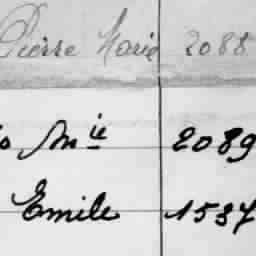 Pierre Marie 2088
o Mie 2089
Emile 1537